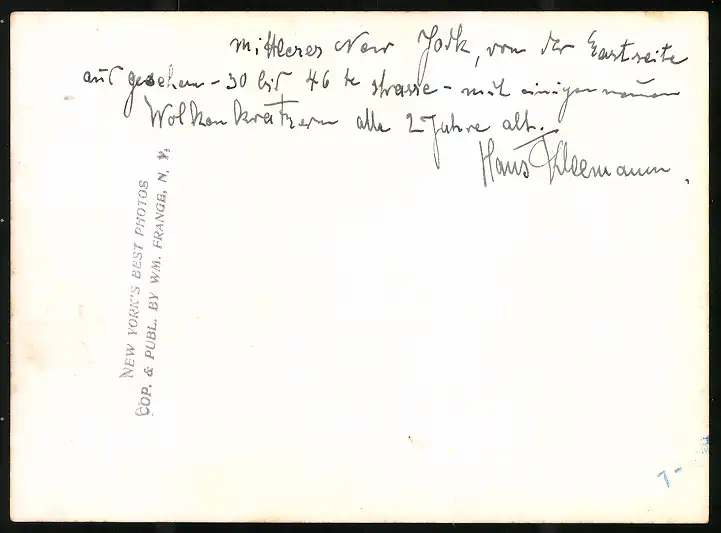 Mittleres New York, von der Eastseite
aus gesehen - 30 bis 46 te strasse - mit einigen neuen
Wolkenkratzern alle 2 Jahre alt.
Hans Kleemann.
NEW YORK'S BEST PHOTOS
COP. & PUBL. BY WM. FRANGE, N. Y.
7-